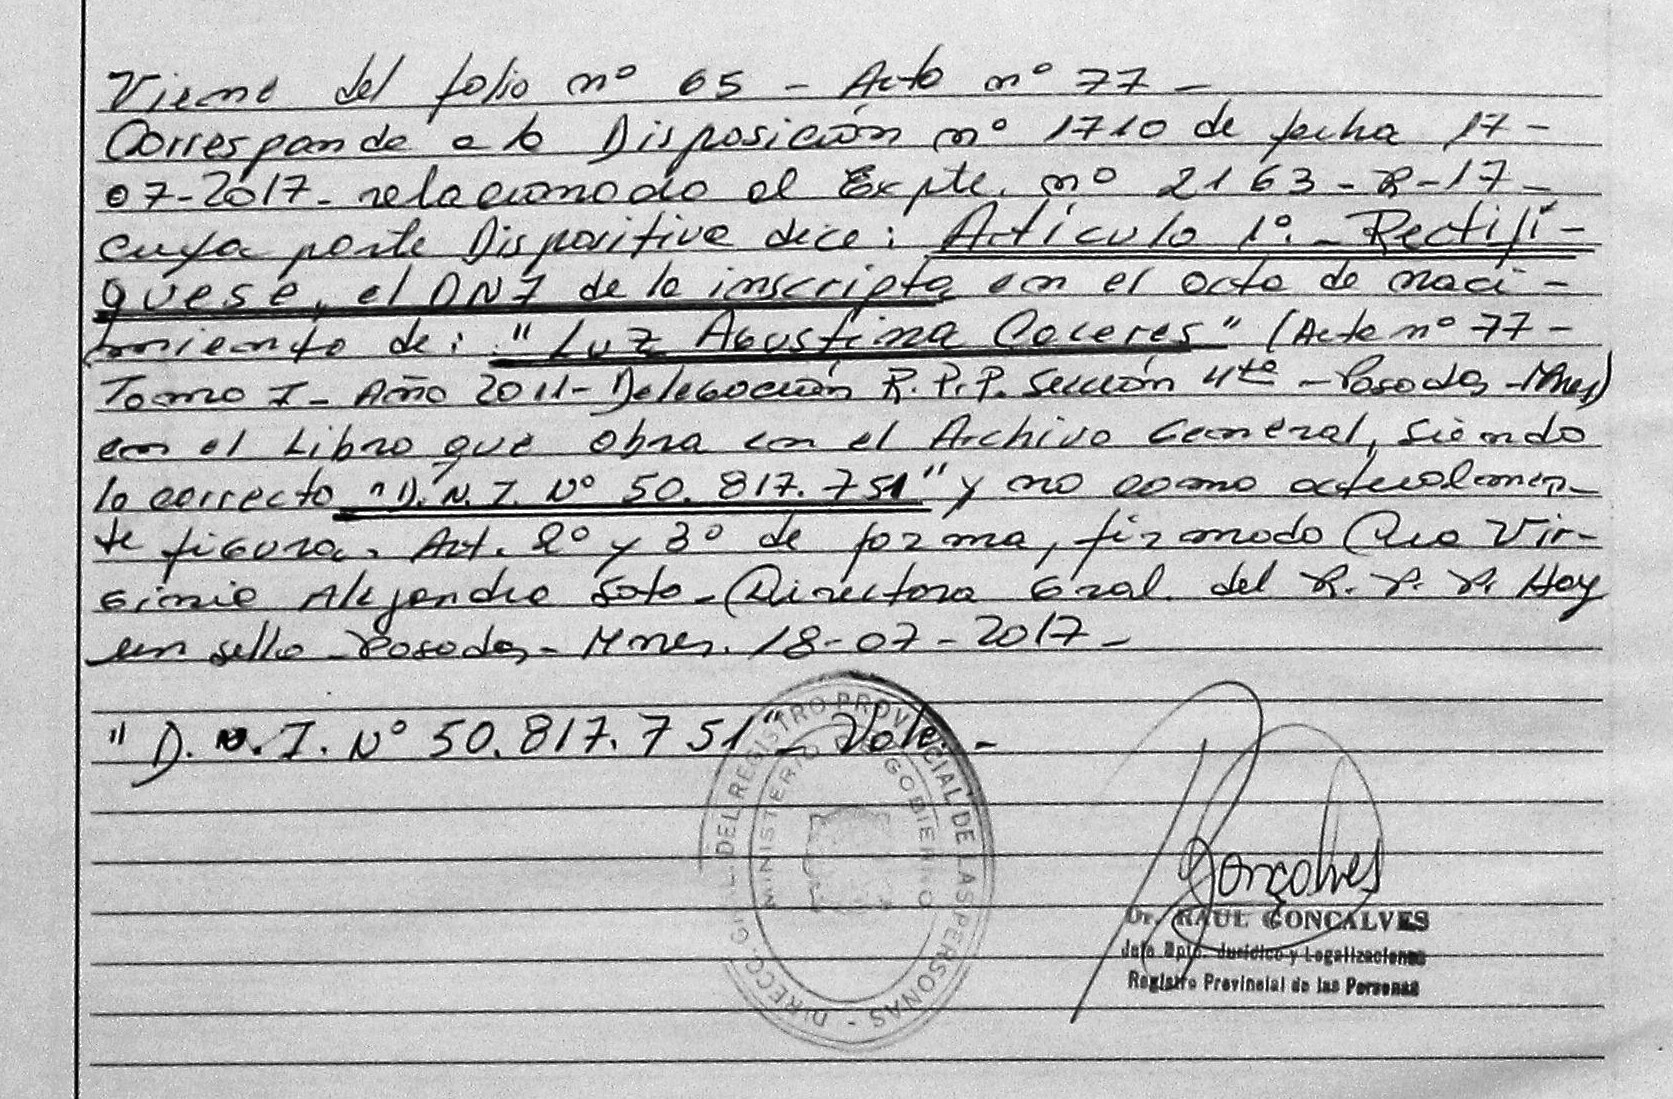 Viene del folio nº 65 - Acta nº 77 -
Corresponde a la Disposición nº 1710 de fecha 17-
07-2017- relacionado al Expte. nº 2163-R-17-
cuya parte Dispositiva dice: Artículo 1º.- Rectifí-
quese, el DNI de la inscripta en el acta de naci-
miento de: "Luz Agustina Caceres" (Acta nº 77-
Tomo I- Año 2011- Delegación R.P.P. Sección 4ta - Posadas - Mnes)
en el Libro que obra en el Archivo General, siendo
lo correcto "D.N.I. Nº 50.817.751" y no como actualmen-
te figura. Art. 2º y 3º de forma, firmado Vir-
ginia Alejandra Soto - Directora Gral. del R.P.P. Hay
un sello - Posadas - Mnes. 18-07-2017-
"D.N.I. Nº 50.817.751" - Vale. -
DIRECC. GRAL. DEL REGISTRO PROVINCIAL DE LAS PERSONAS -
MINISTERIO DE GOBIERNO
Gonçalves
Dr. RAUL GONCALVES
Jefe Dpto. Jurídico y Legalizaciones
Registro Provincial de las Personas